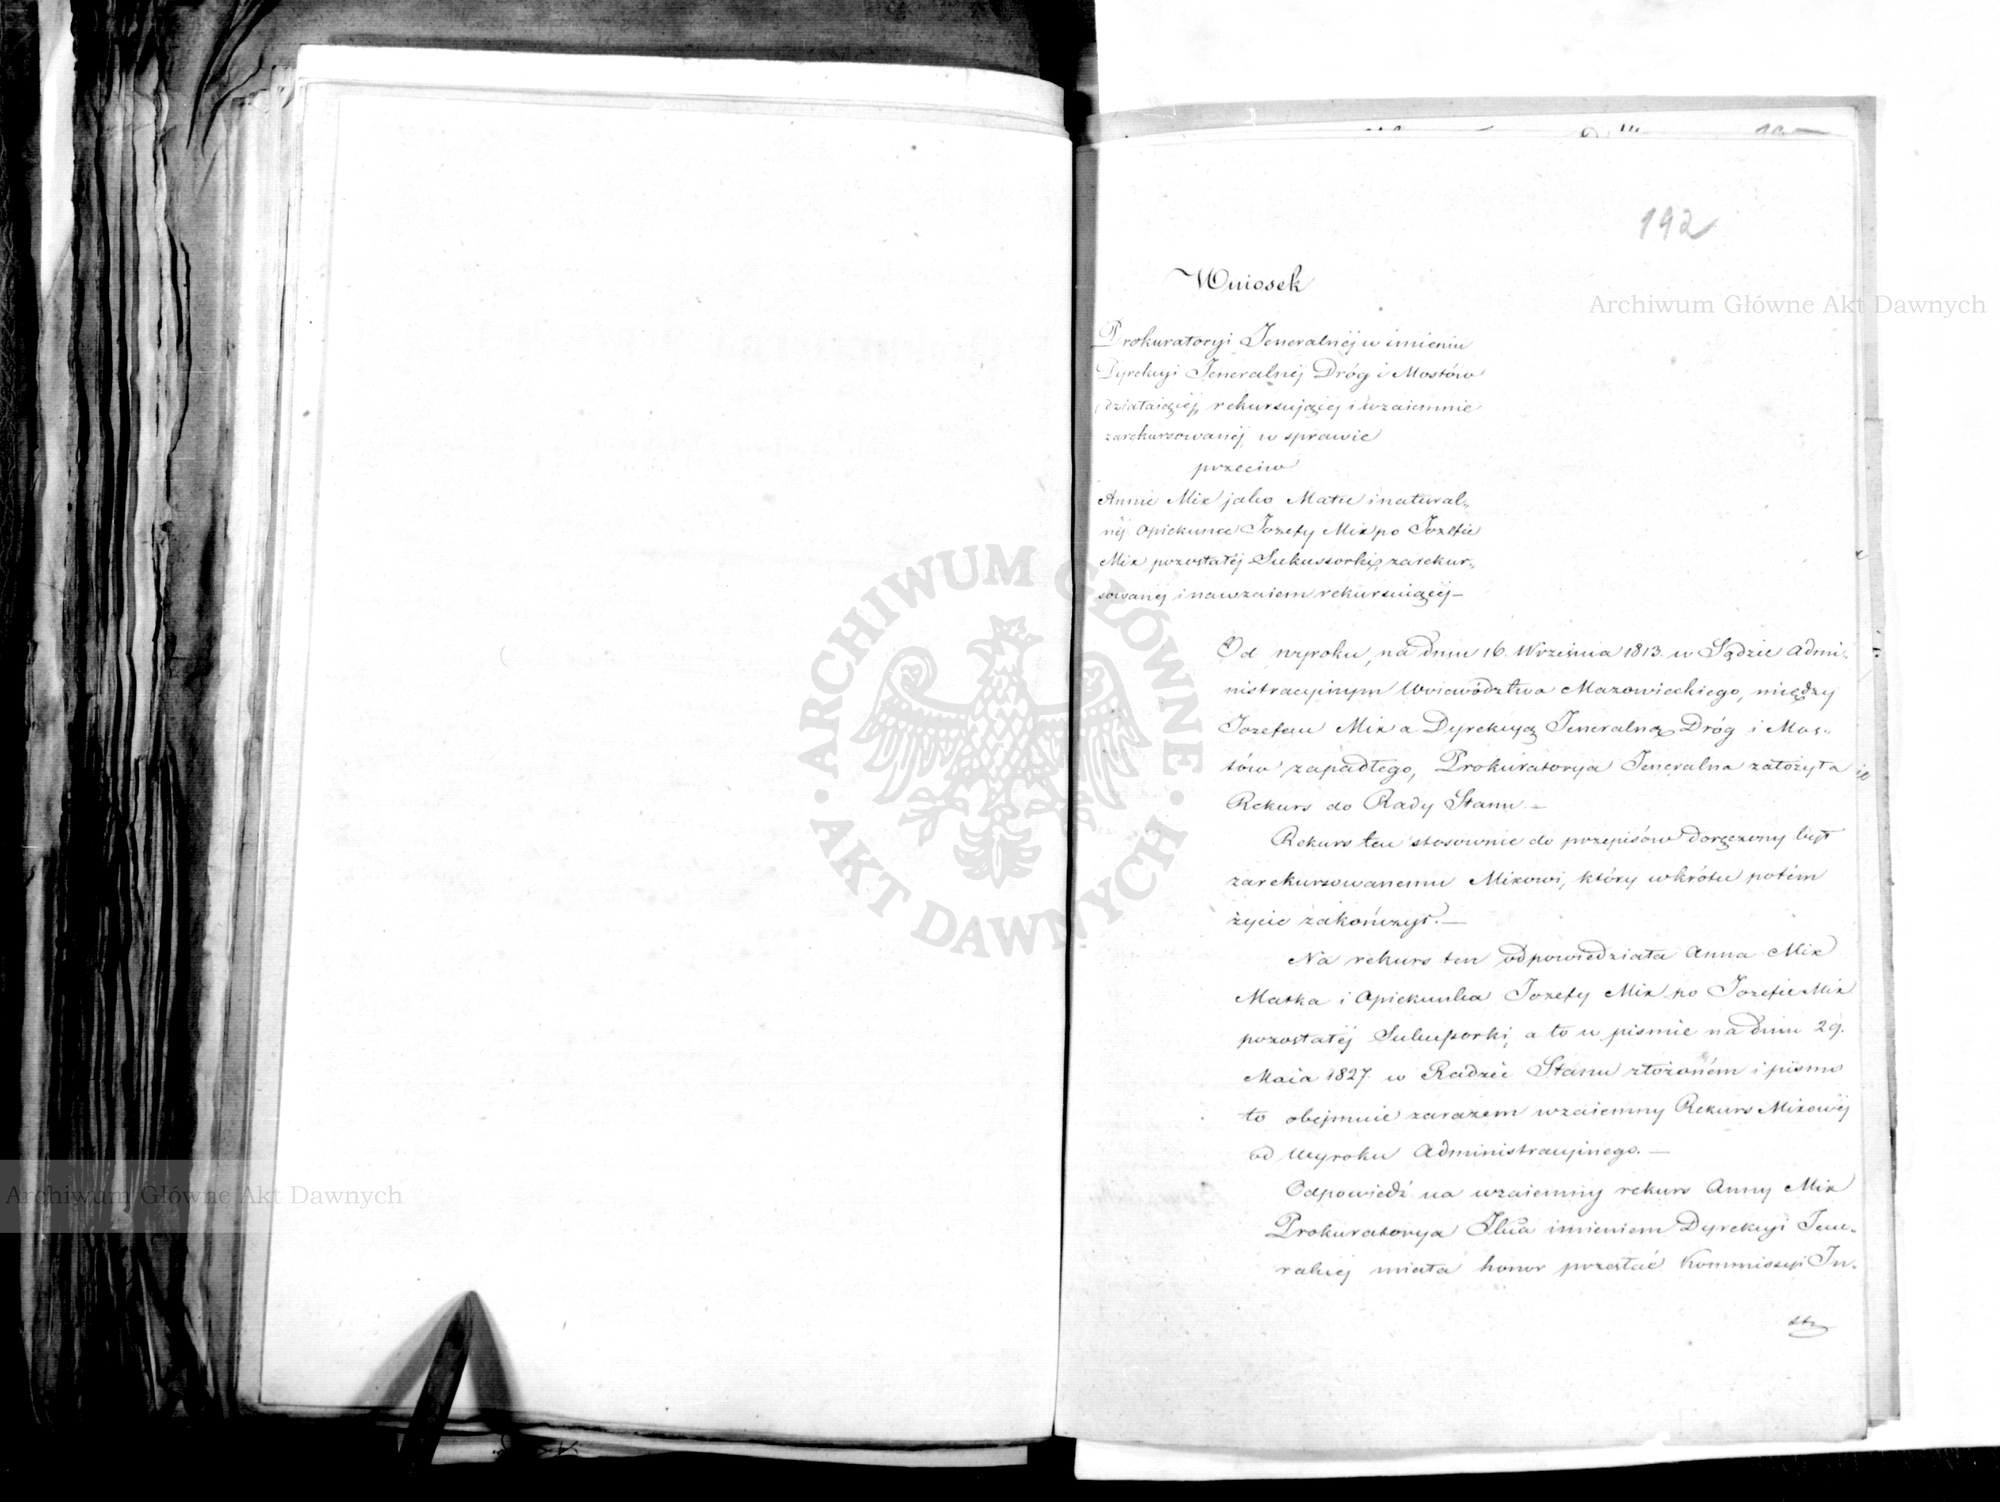 192
Wniosek
Prokuratoryi Jeneralnéj w imieniu
Dyrekcyi Jeneralnéj Dróg i Mostów
działaiącéj, rekursującéj i wzaiemnie
zarekursowanéj, w sprawie
przeciw
Annie Mix jako Matce i natural-
néj Opiekunce Jozefy Mix po Jozefie
Mix pozostałéj Sukcessorki, zarekur-
sowanéj i nawzaiem rekursuiącéj —
Od wyroku, na dniu 16. Września 1813. w Sądzie Admi-
nistracyinym Woiewództwa Mazowieckiego, między
Jozefem Mix a Dyrekcyą Jeneralną Dróg i Mos-
tów zapadłego, Prokuratorya Jeneralna założyła
Rekurs do Rady Stanu —
Rekurs ten stosownie do przepisów doręczony był
zarekursowanemu Mixowi, który wkrótce potém
życie zakończył. —
Na rekurs ten odpowiedziała Anna Mix
Matka i Opiekunka Jozefy Mix po Jozefie Mix
pozostałéj Sukcessorki, a to w pismie na dniu 29.
Maia 1827. w Radzie Stanu złożoném i pismo
to obejmuie zarazem wzaiemny Rekurs Mixowéj
od Wyroku Administracyinego. —
Odpowiedź na wzaiemny rekurs Anny Mix
Prokuratorya Jlna imieniem Dyrekcyi Jene-
ralnéj miała honor przesłać Kommissyi In-
Archiwum Główne Akt Dawnych
Archiwum Główne Akt Dawnych
· ARCHIWUM GŁÓWNE · AKT DAWNYCH